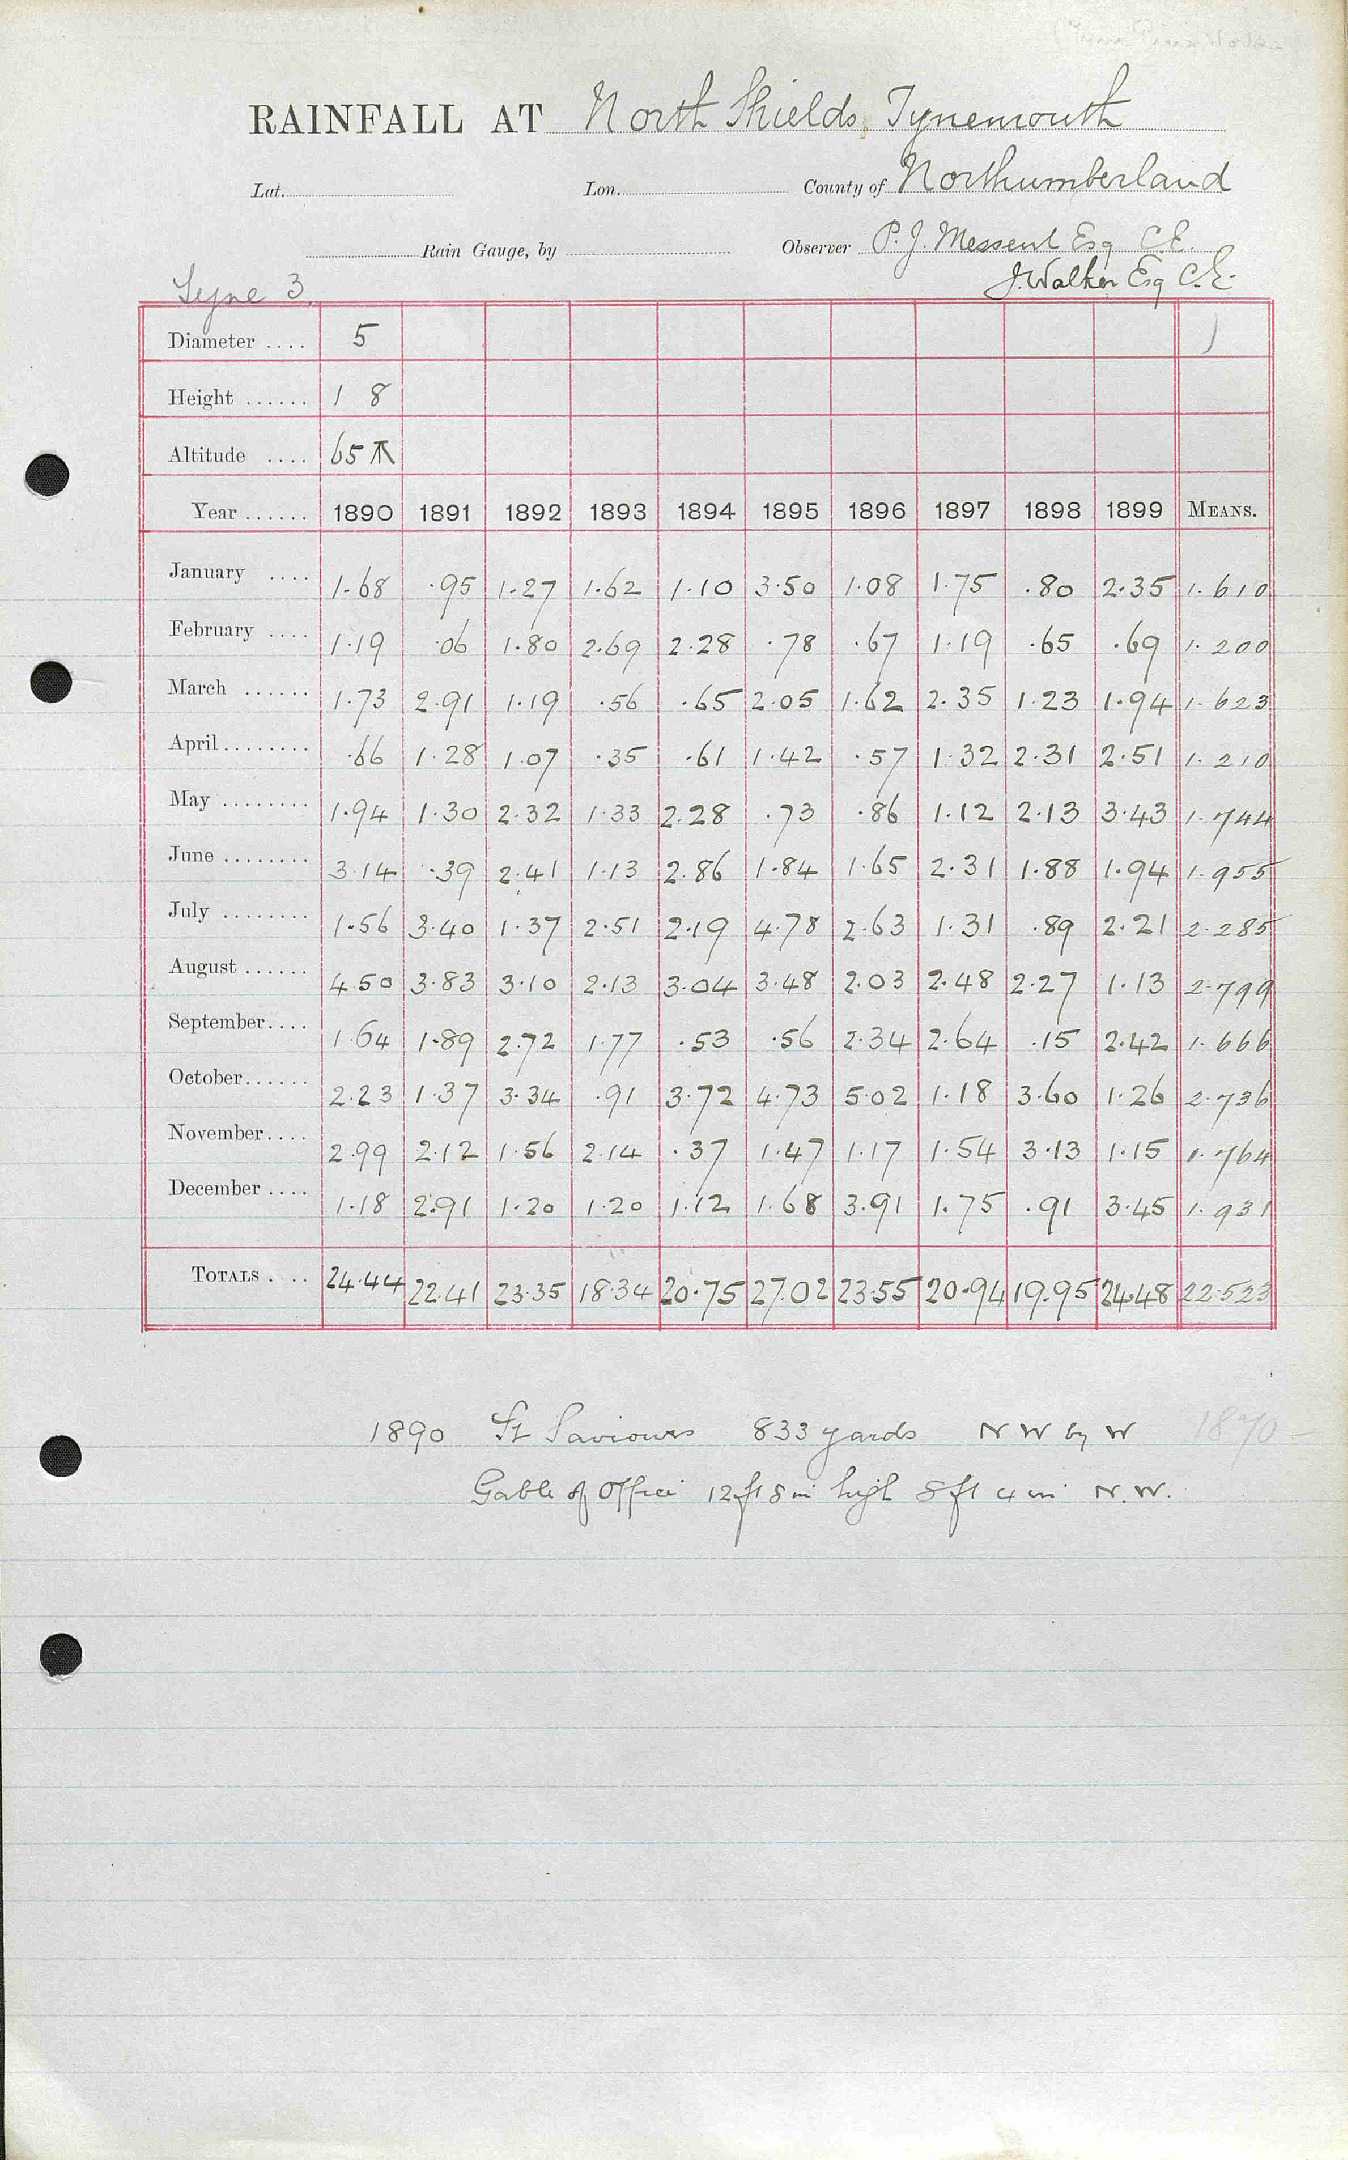 RAINFALL AT North Shields, Tynemouth
Lat. Lon. County of Northumberland
Rain Gauge, by Observer P. J. Messent Esq C.E.
J. Walker Esq C.E.
Tyne 3.
Diameter .... 5
Height ...... 1 8
Altitude .... 65
Year ...... 1890 1891 1892 1893 1894 1895 1896 1897 1898 1899 MEANS.
January .... 1.68 .95 1.27 1.62 1.10 3.50 1.08 1.75 .80 2.35 1.610
February .... 1.19 .06 1.80 2.69 2.28 .78 .67 1.19 .65 .69 1.200
March ...... 1.73 2.91 1.19 .56 .65 2.05 1.62 2.35 1.23 1.94 1.623
April ........ .66 1.28 1.07 .35 .61 1.42 .57 1.32 2.31 2.51 1.210
May ........ 1.94 1.30 2.32 1.33 2.28 .73 .86 1.12 2.13 3.43 1.744
June ........ 3.14 .39 2.41 1.13 2.86 1.84 1.65 2.31 1.88 1.94 1.955
July ........ 1.56 3.40 1.37 2.51 2.19 4.78 2.63 1.31 .89 2.21 2.285
August ...... 4.50 3.83 3.10 2.13 3.04 3.48 2.03 2.48 2.27 1.13 2.799
September.... 1.64 1.89 2.72 1.77 .53 .56 2.34 2.64 .15 2.42 1.666
October...... 2.23 1.37 3.34 .91 3.72 4.73 5.02 1.18 3.60 1.26 2.736
November.... 2.99 2.12 1.56 2.14 .37 1.47 1.17 1.54 3.13 1.15 1.764
December .... 1.18 2.91 1.20 1.20 1.12 1.68 3.91 1.75 .91 3.45 1.931
TOTALS .... 24.44 22.41 23.35 18.34 20.75 27.02 23.55 20.94 19.95 24.48 22.523
1890 St Saviours 833 yards NW by W 1870-
Gable of Office 12 ft 8 in high 8 ft 4 in N.W.